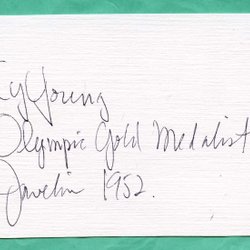 Cy Young
Olympic Gold Medalist
Javelin 1952.